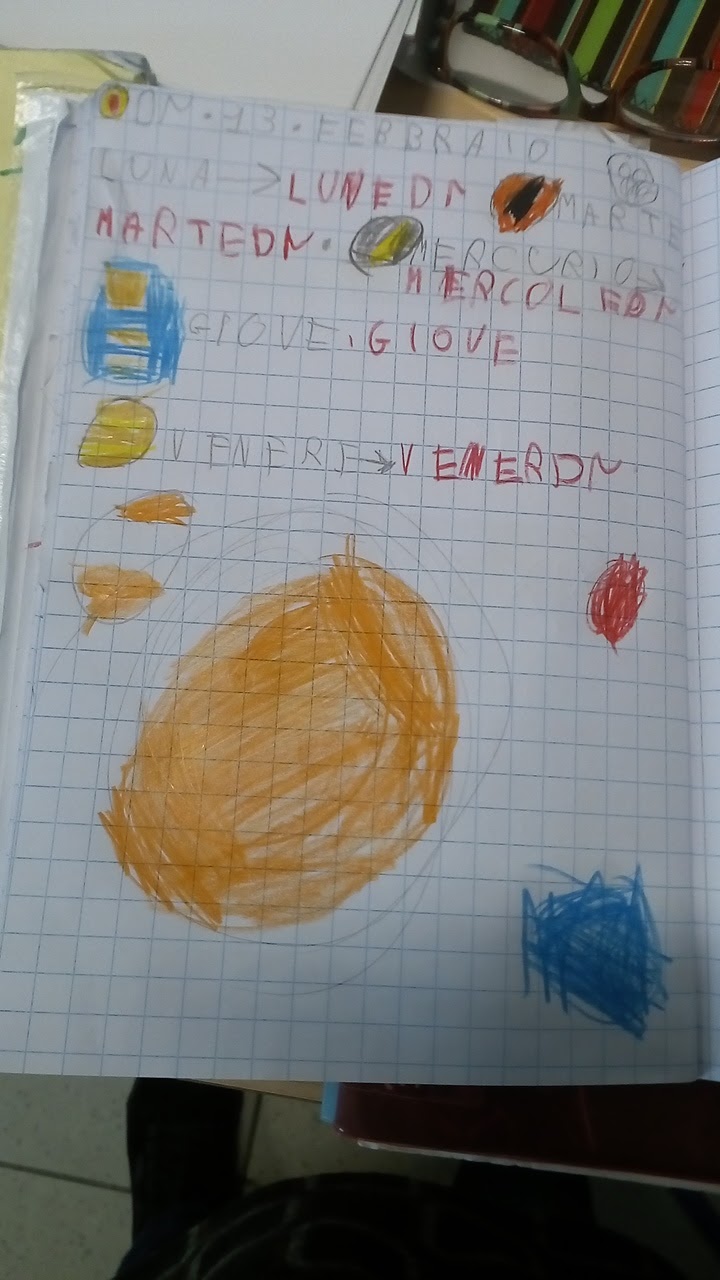 DM. 13. FEBBRAIO
LUNA → LUNEDÌ MARTE
MARTEDÌ. MERCURIO →
MERCOLEDÌ
GIOVE. GIOVE
VENERE → VENERDÌ